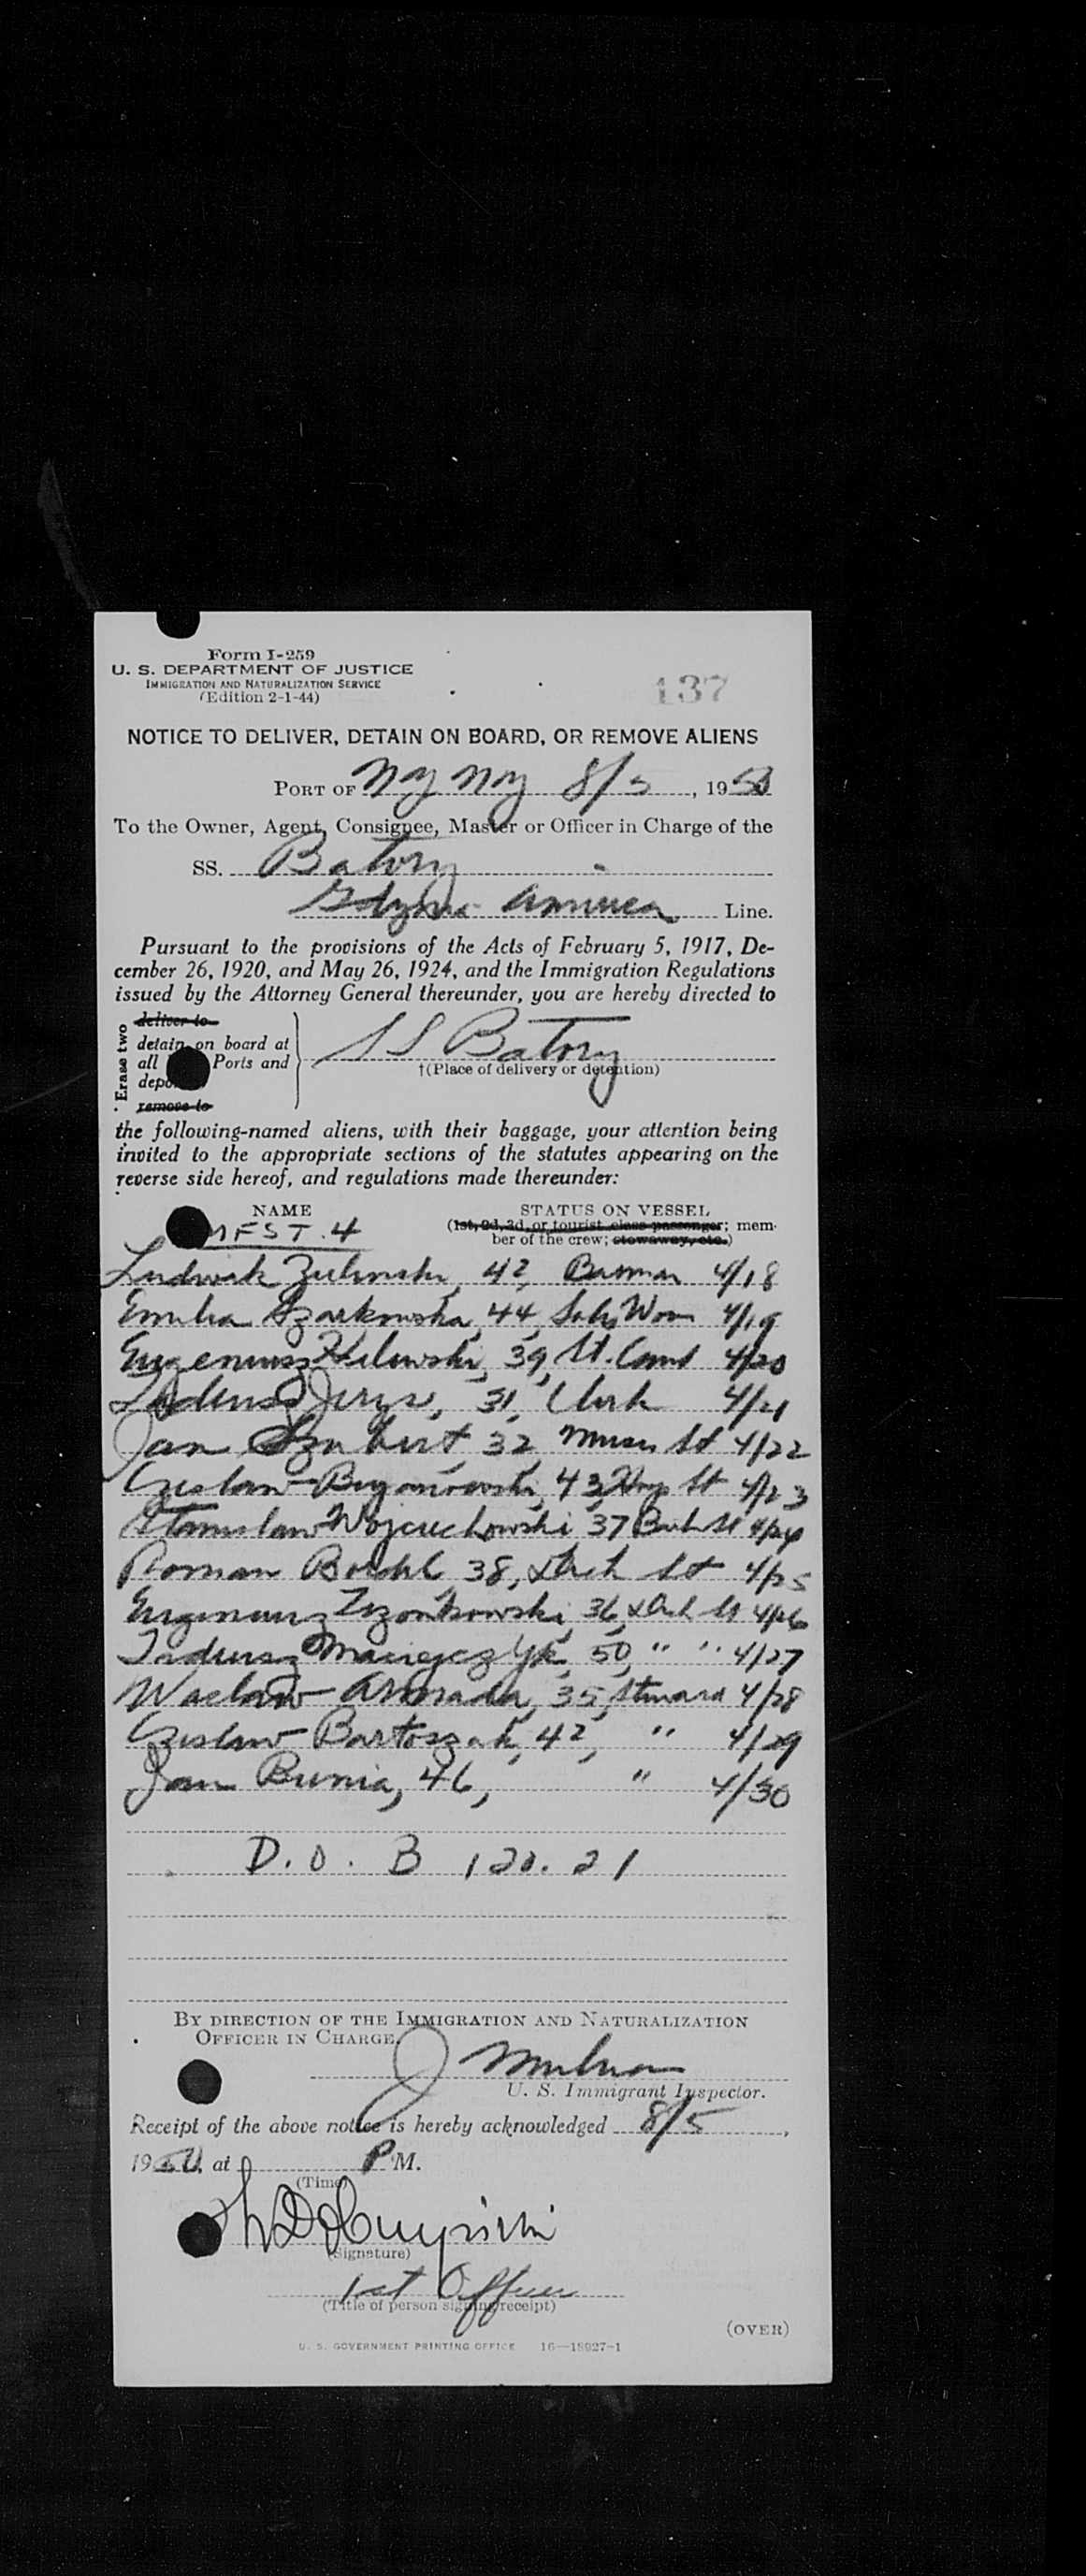 Form I-259
U. S. DEPARTMENT OF JUSTICE
IMMIGRATION AND NATURALIZATION SERVICE
(Edition 2-1-44)
137
NOTICE TO DELIVER, DETAIN ON BOARD, OR REMOVE ALIENS
PORT OF NY NY 8/5, 1950
To the Owner, Agent, Consignee, Master or Officer in Charge of the
SS. Batory
Gdynia America Line.
Pursuant to the provisions of the Acts of February 5, 1917, De-
cember 26, 1920, and May 26, 1924, and the Immigration Regulations
issued by the Attorney General thereunder, you are hereby directed to
Erase two
deliver to
detain on board at
all Ports and
remove to
SS Batory
†(Place of delivery or detention)
the following-named aliens, with their baggage, your attention being
invited to the appropriate sections of the statutes appearing on the
reverse side hereof, and regulations made thereunder:
NAME
STATUS ON VESSEL
(1st, 2d, 3d, or tourist class passenger; mem-
ber of the crew; stowaway, etc.)
MFST. 4
Ludwik Zielinski, 42, Barman 4/18
Emilia Szarkowska, 44, 4/19
Eugeniusz 39, 4/20
Tadeusz 31, Clerk 4/21
Jan Szubert 32 St 4/22
Czeslaw 43, St 4/23
Stanislaw Wojciechowski 37 St 4/24
Roman 38, St 4/25
Eugeniusz 36, St 4/26
Tadeusz Maciejczyk, 50, " " 4/27
Waclaw 35, Steward 4/28
Czeslaw Bartoszak, 42, " 4/29
Jan Bunia, 46, " 4/30
D. O. B 120.21
BY DIRECTION OF THE IMMIGRATION AND NATURALIZATION
OFFICER IN CHARGE.
U. S. Immigrant Inspector.
Receipt of the above notice is hereby acknowledged 8/5,
1950, at P M.
(Time)
(Signature)
1st Officer
(Title of person signing receipt)
(OVER)
U. S. GOVERNMENT PRINTING OFFICE 16—18927-1